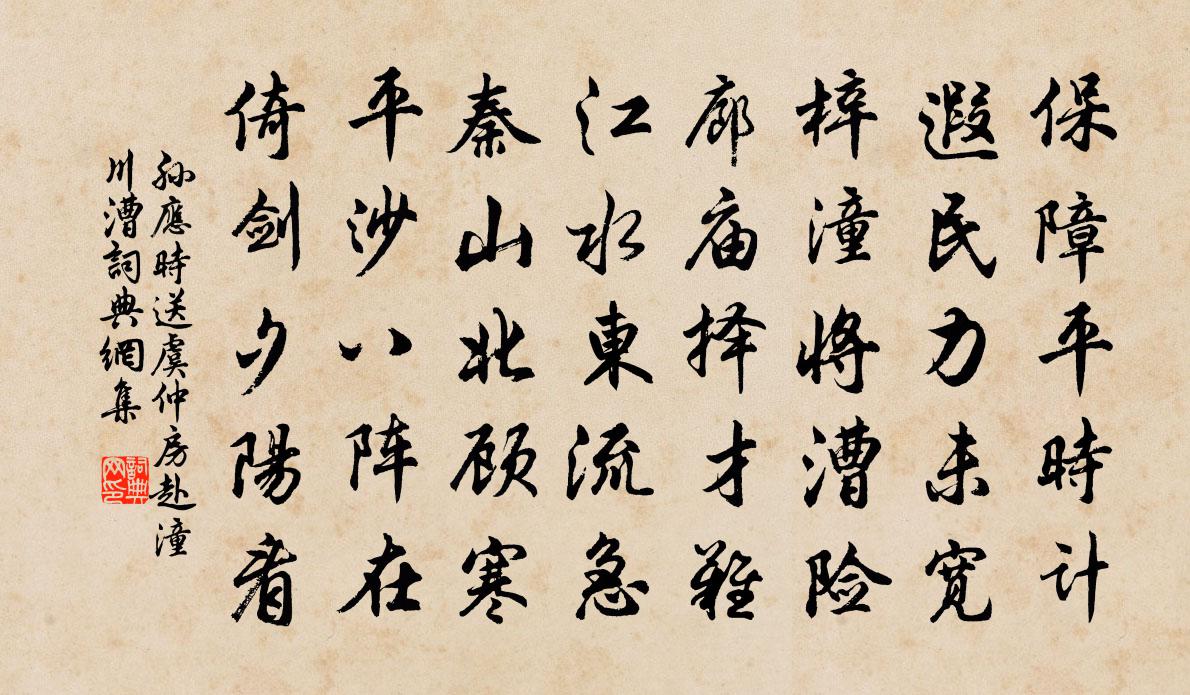 保障平時计
遐民力未寬
梓潼將漕险
廊庙择才難
江水東流急
秦山北顾寒
平沙八阵在
倚剑夕陽看
孙應時送虞仲房赴潼
川漕詞典網集
詞典网印